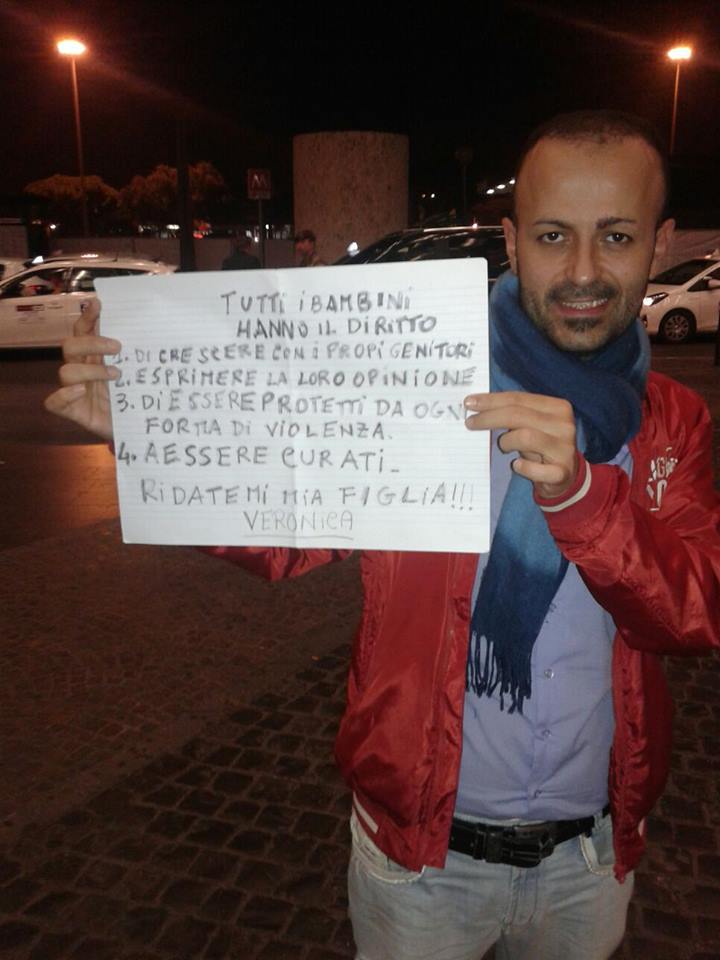 TUTTI I BAMBINI
HANNO IL DIRITTO
1. DI CRESCERE CON I PROPI GENITORI
2. ESPRIMERE LA LORO OPINIONE
3. DI ESSERE PROTETTI DA OGNI
FORMA DI VIOLENZA.
4. A ESSERE CURATI_
RIDATEMI MIA FIGLIA!!!
VERONICA
M